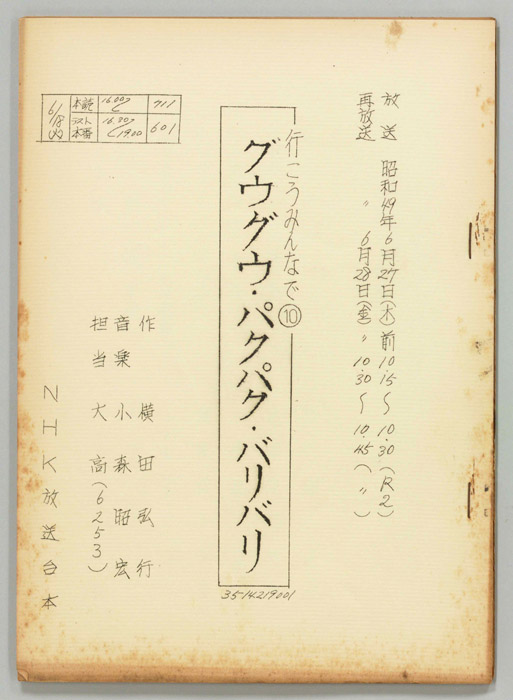 放送 昭和49年6月27日(木)前10.15〜10.30(R2)
再放送 〃 6月28日(金)〃10.30〜10.45(〃)
行こうみんなで⑩
グウグウ・パクパク・バリバリ
35-14219001
6/18 火
本読 16.00〜 711
テスト 16.30〜
本番 〜19.00 601
作 横田弘行
音楽 小森昭宏
担当 大高(6253)
NHK放送台本